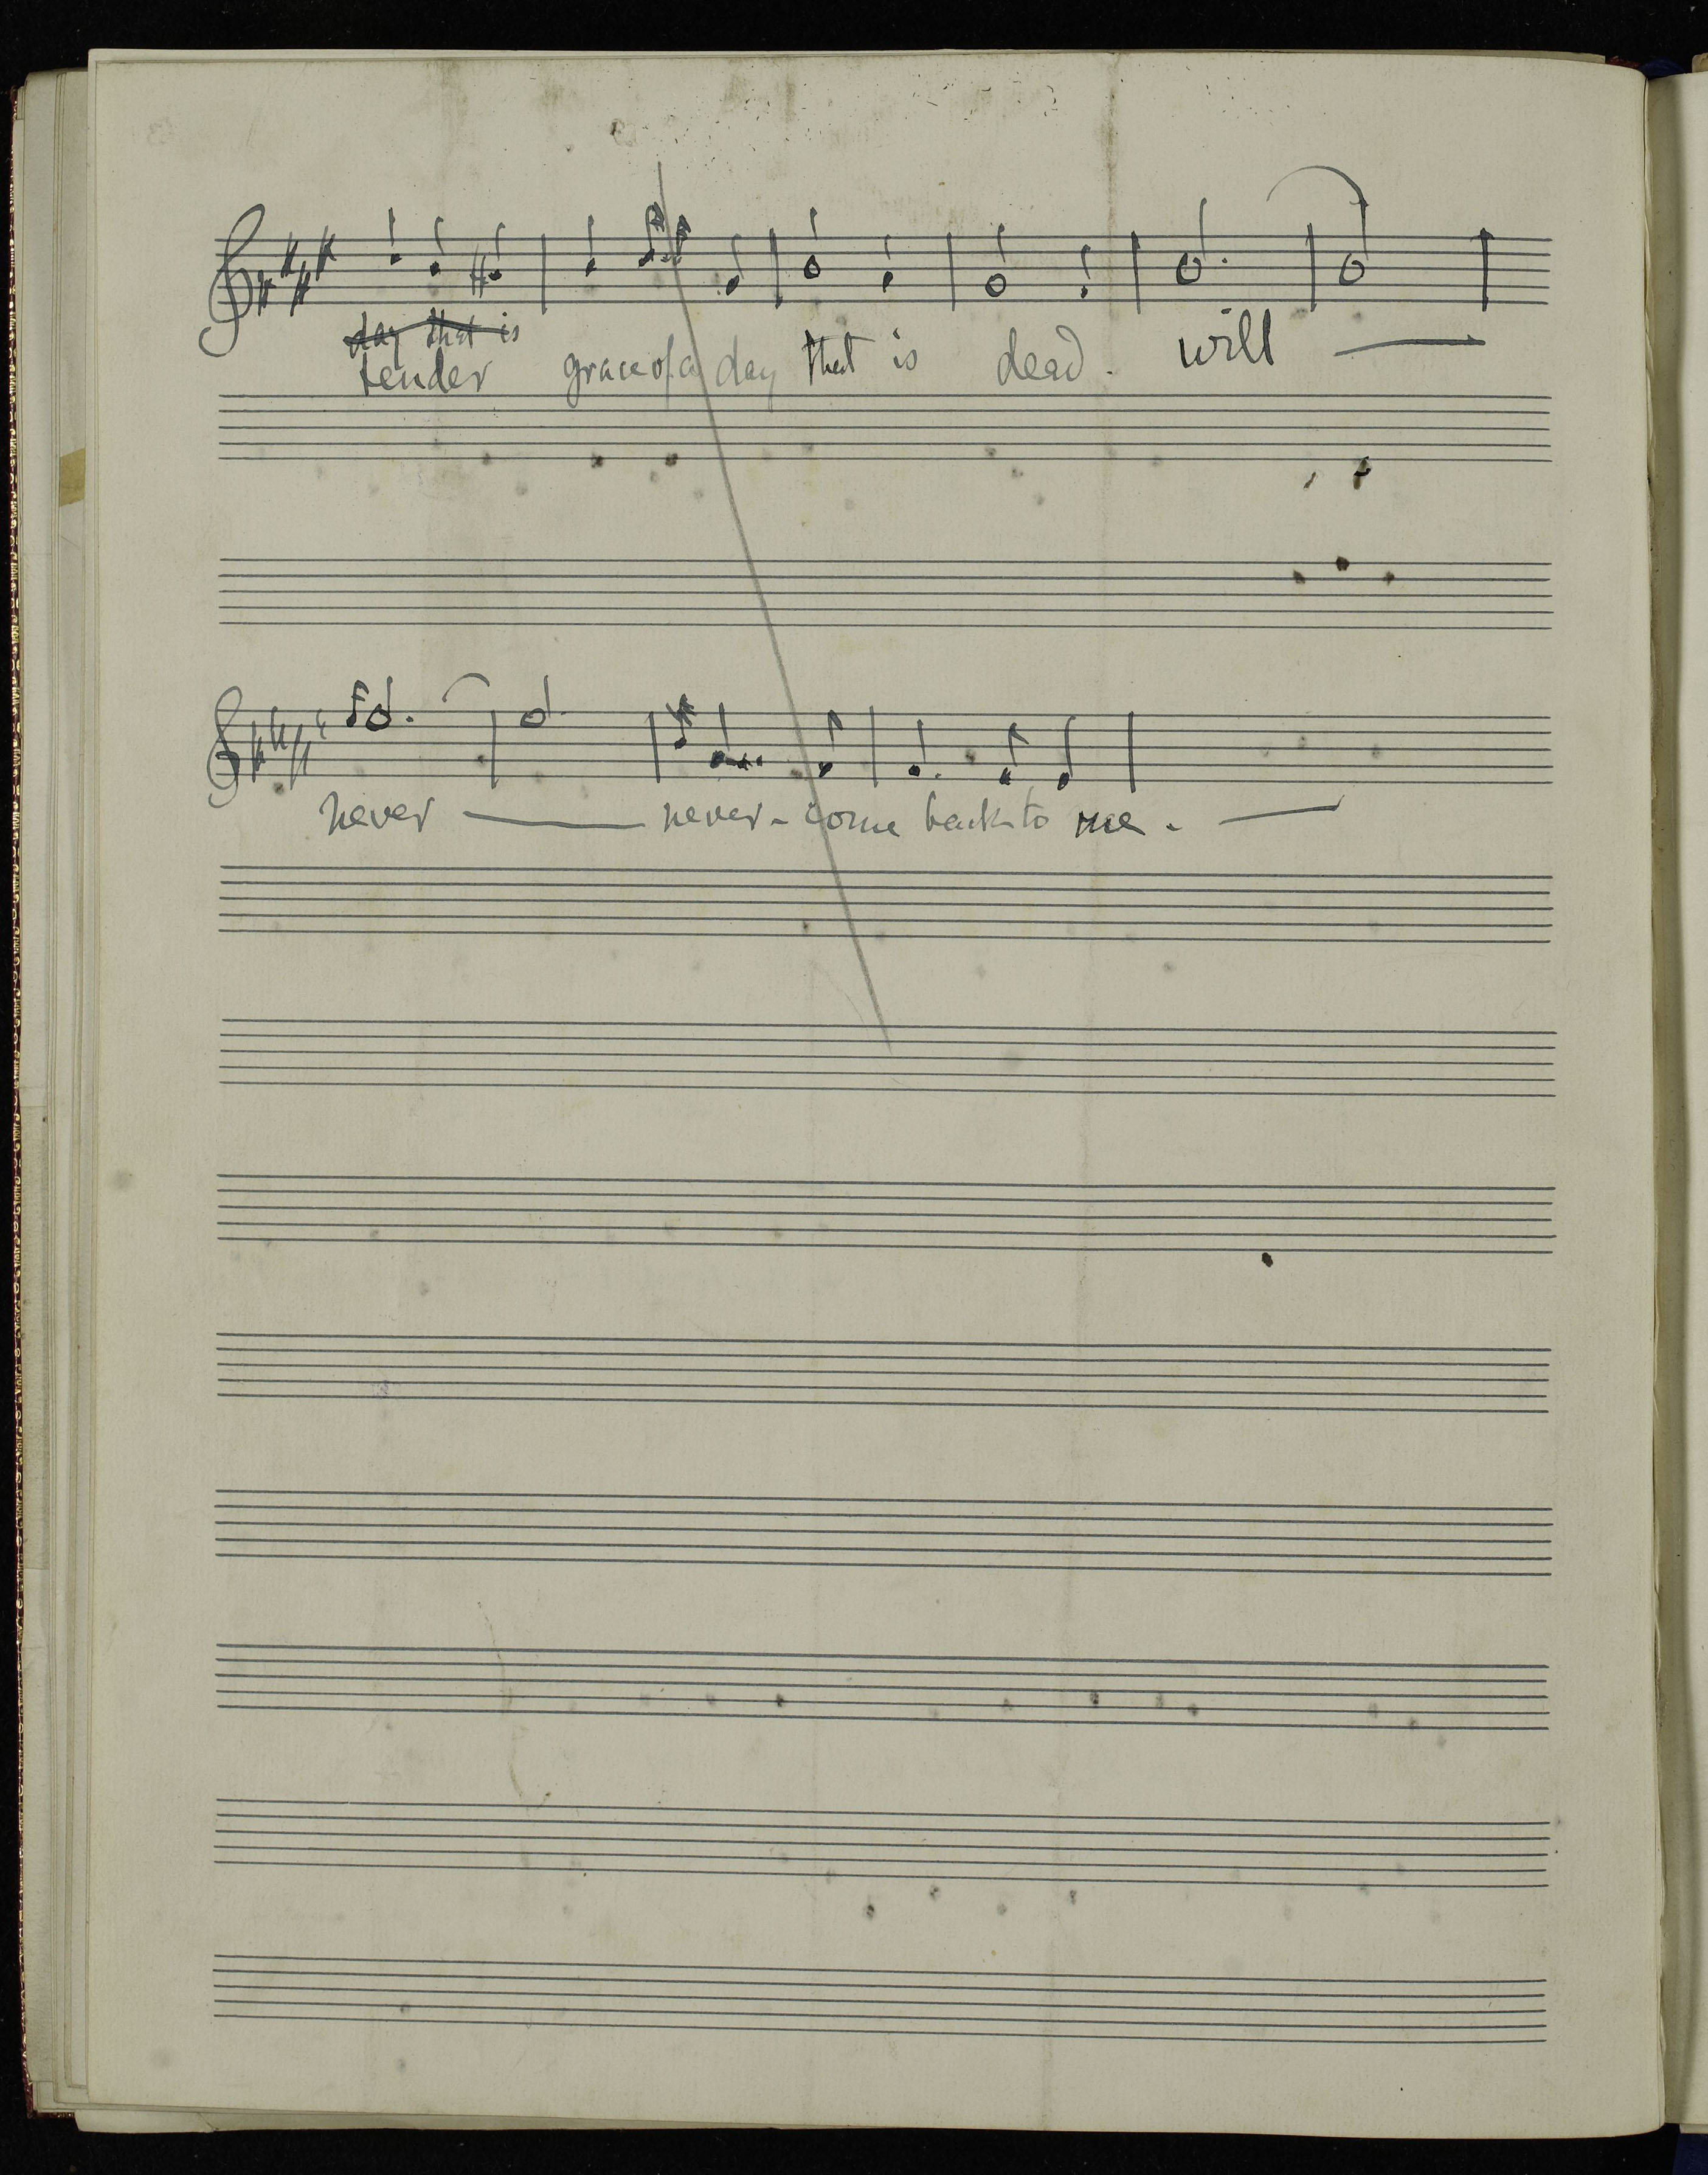 day that is
tender grace of a day that is dead. will
never never - come back to me.